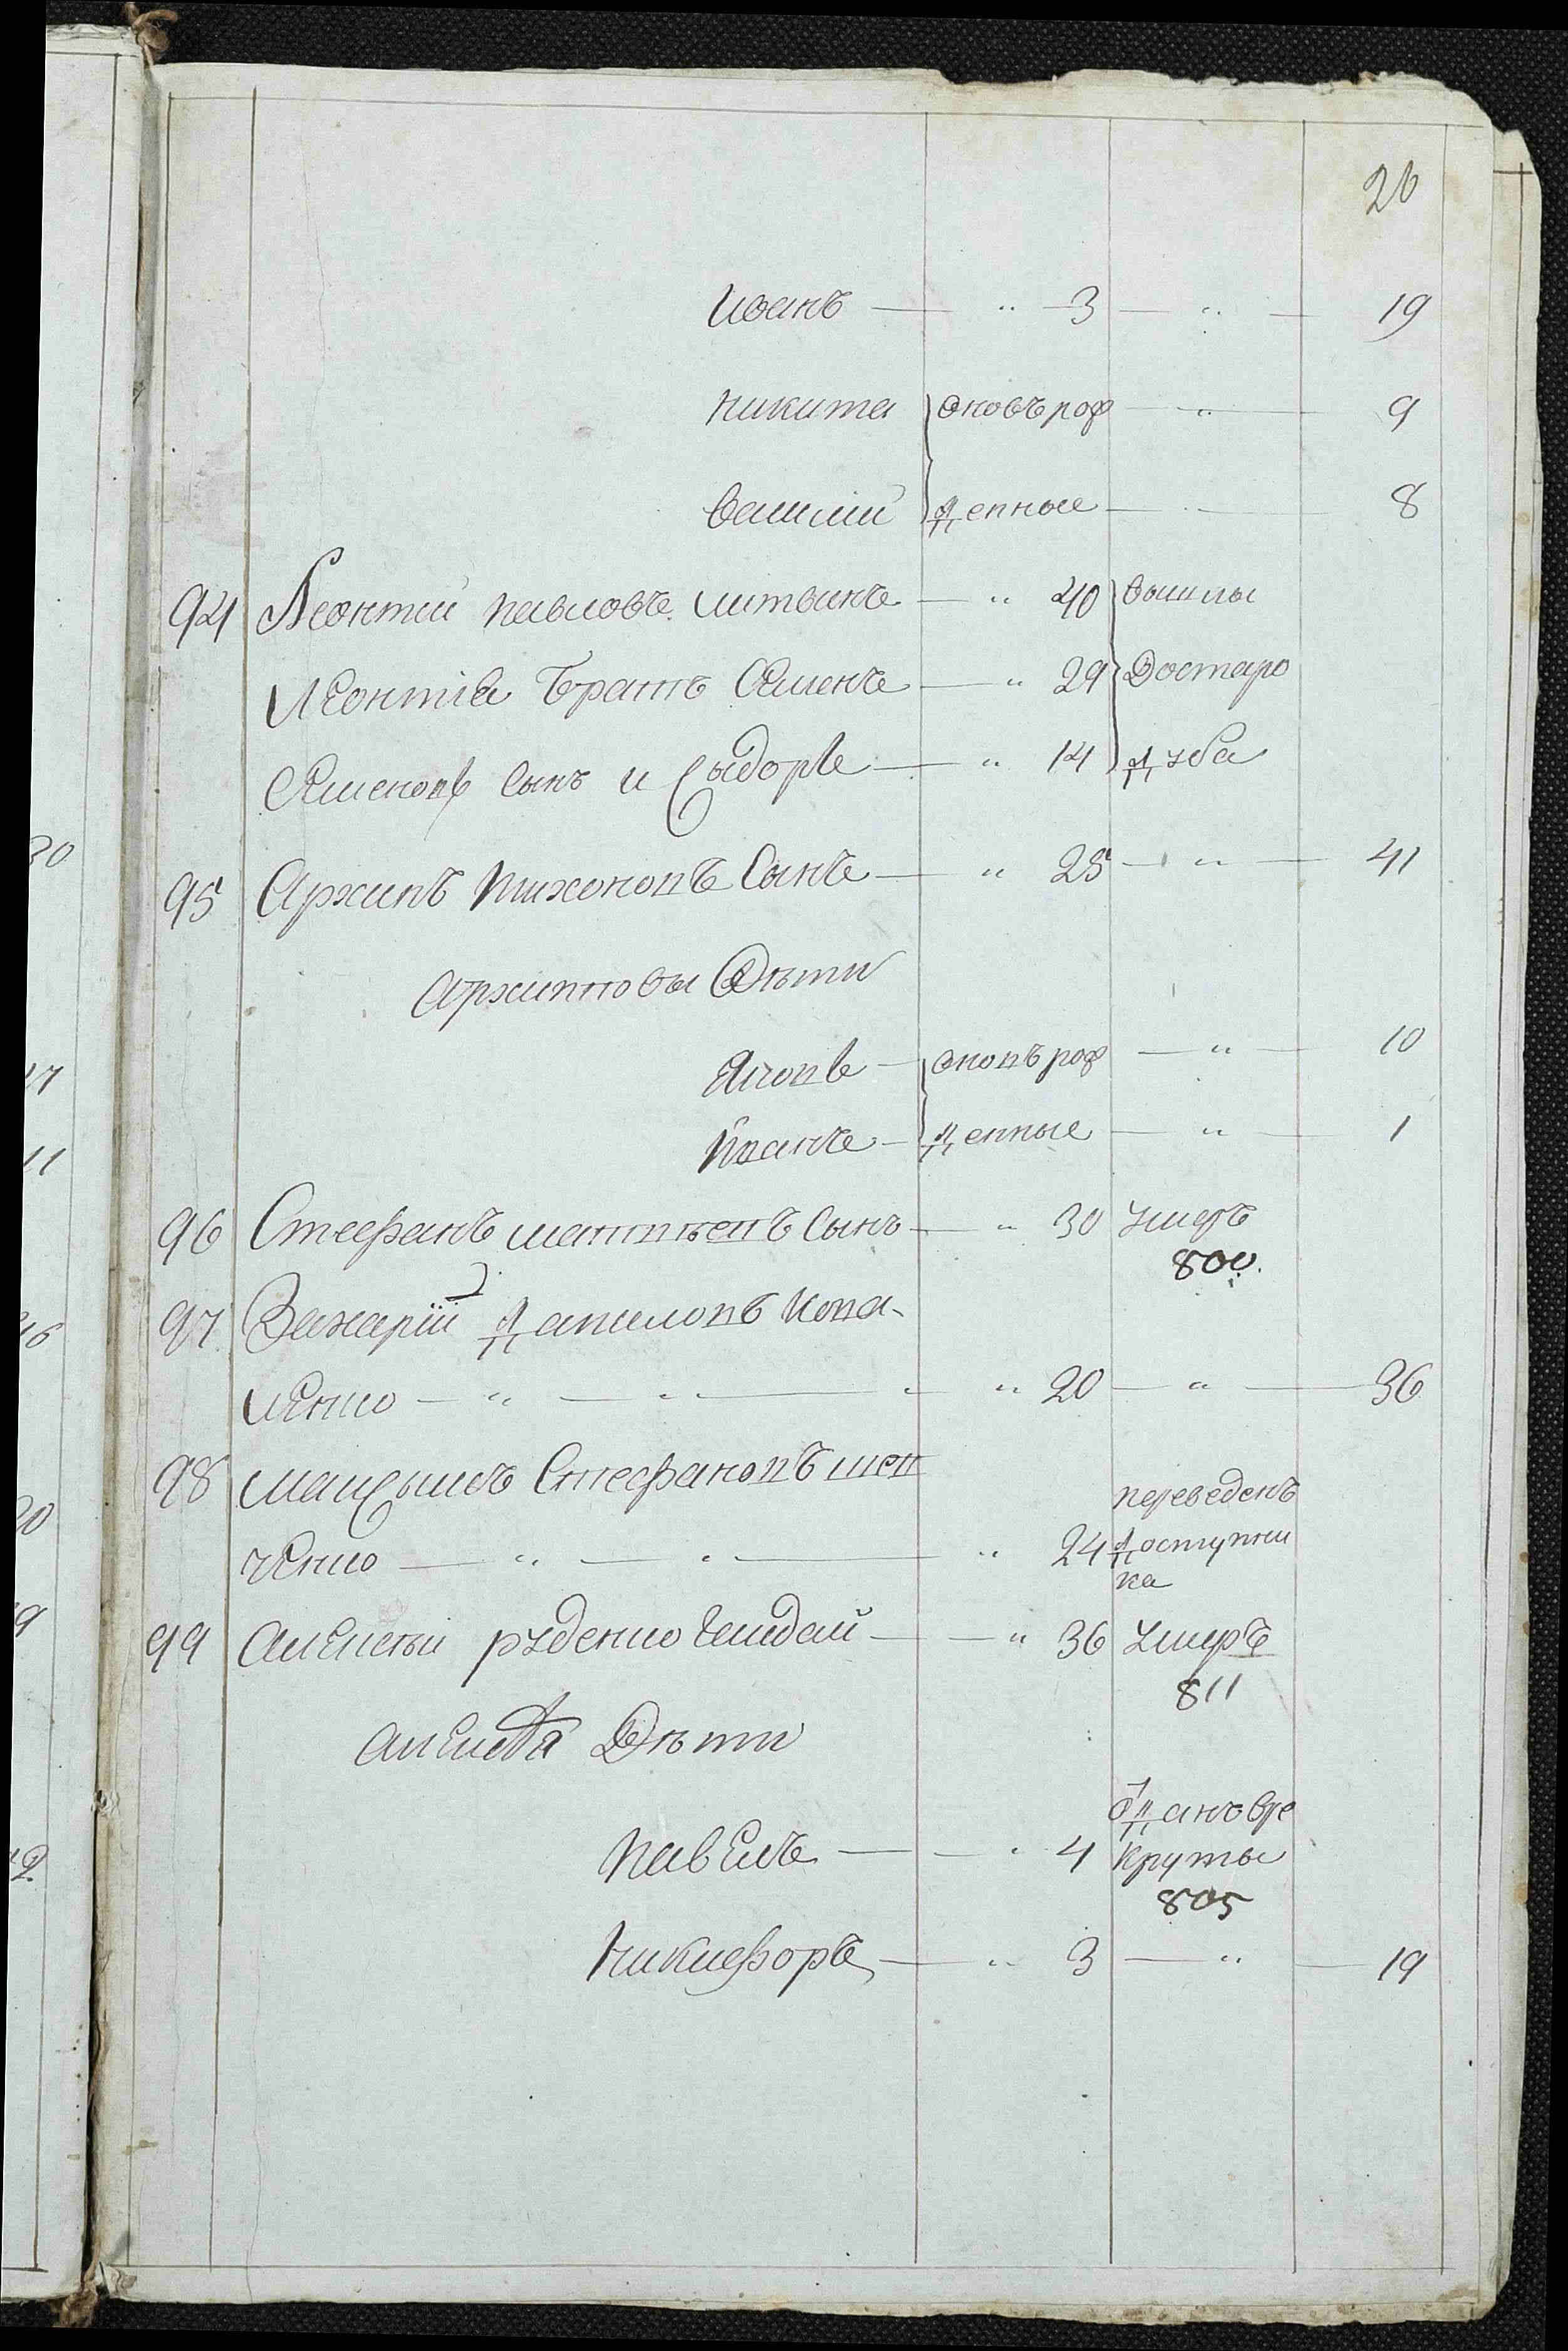 26
Иванъ — „ 3 — „ — 19
Никита } вновъ рож — „ — 9
Василий } денные — „ — 8
94 Леонтий Павловъ Литвинъ — „ 40 } вышлы
Леонтіа братъ Семенъ — „ 29 } Достаро
Семеновъ сынъ и Сыдоръ — „ 14 } дуба
95 Архипъ Тихоновъ Сынъ — „ 25 — „ — 41
Архиповы Дѣти
Яковъ — } вновъ рож — „ — 10
Иванъ — } денные — „ — 1
96 Стефанъ Матвѣевъ Сынъ — „ 30 умеръ
800.
97 Захарій Даниловъ Кова-
ленко — „ — „ — „ 20 — „ — 36
98 Макъсымъ Стефановъ Шев
ченко — „ — „ — „ 24 переведенъ
Доступни
ка
99 Алексѣй Руденко Гайдай — „ 36 умеръ
811
Алексѣя Дѣти
Павелъ — „ 4 отданъ вре
круты
805
Никифоръ — „ 3 — „ — 19
30
17
11
20